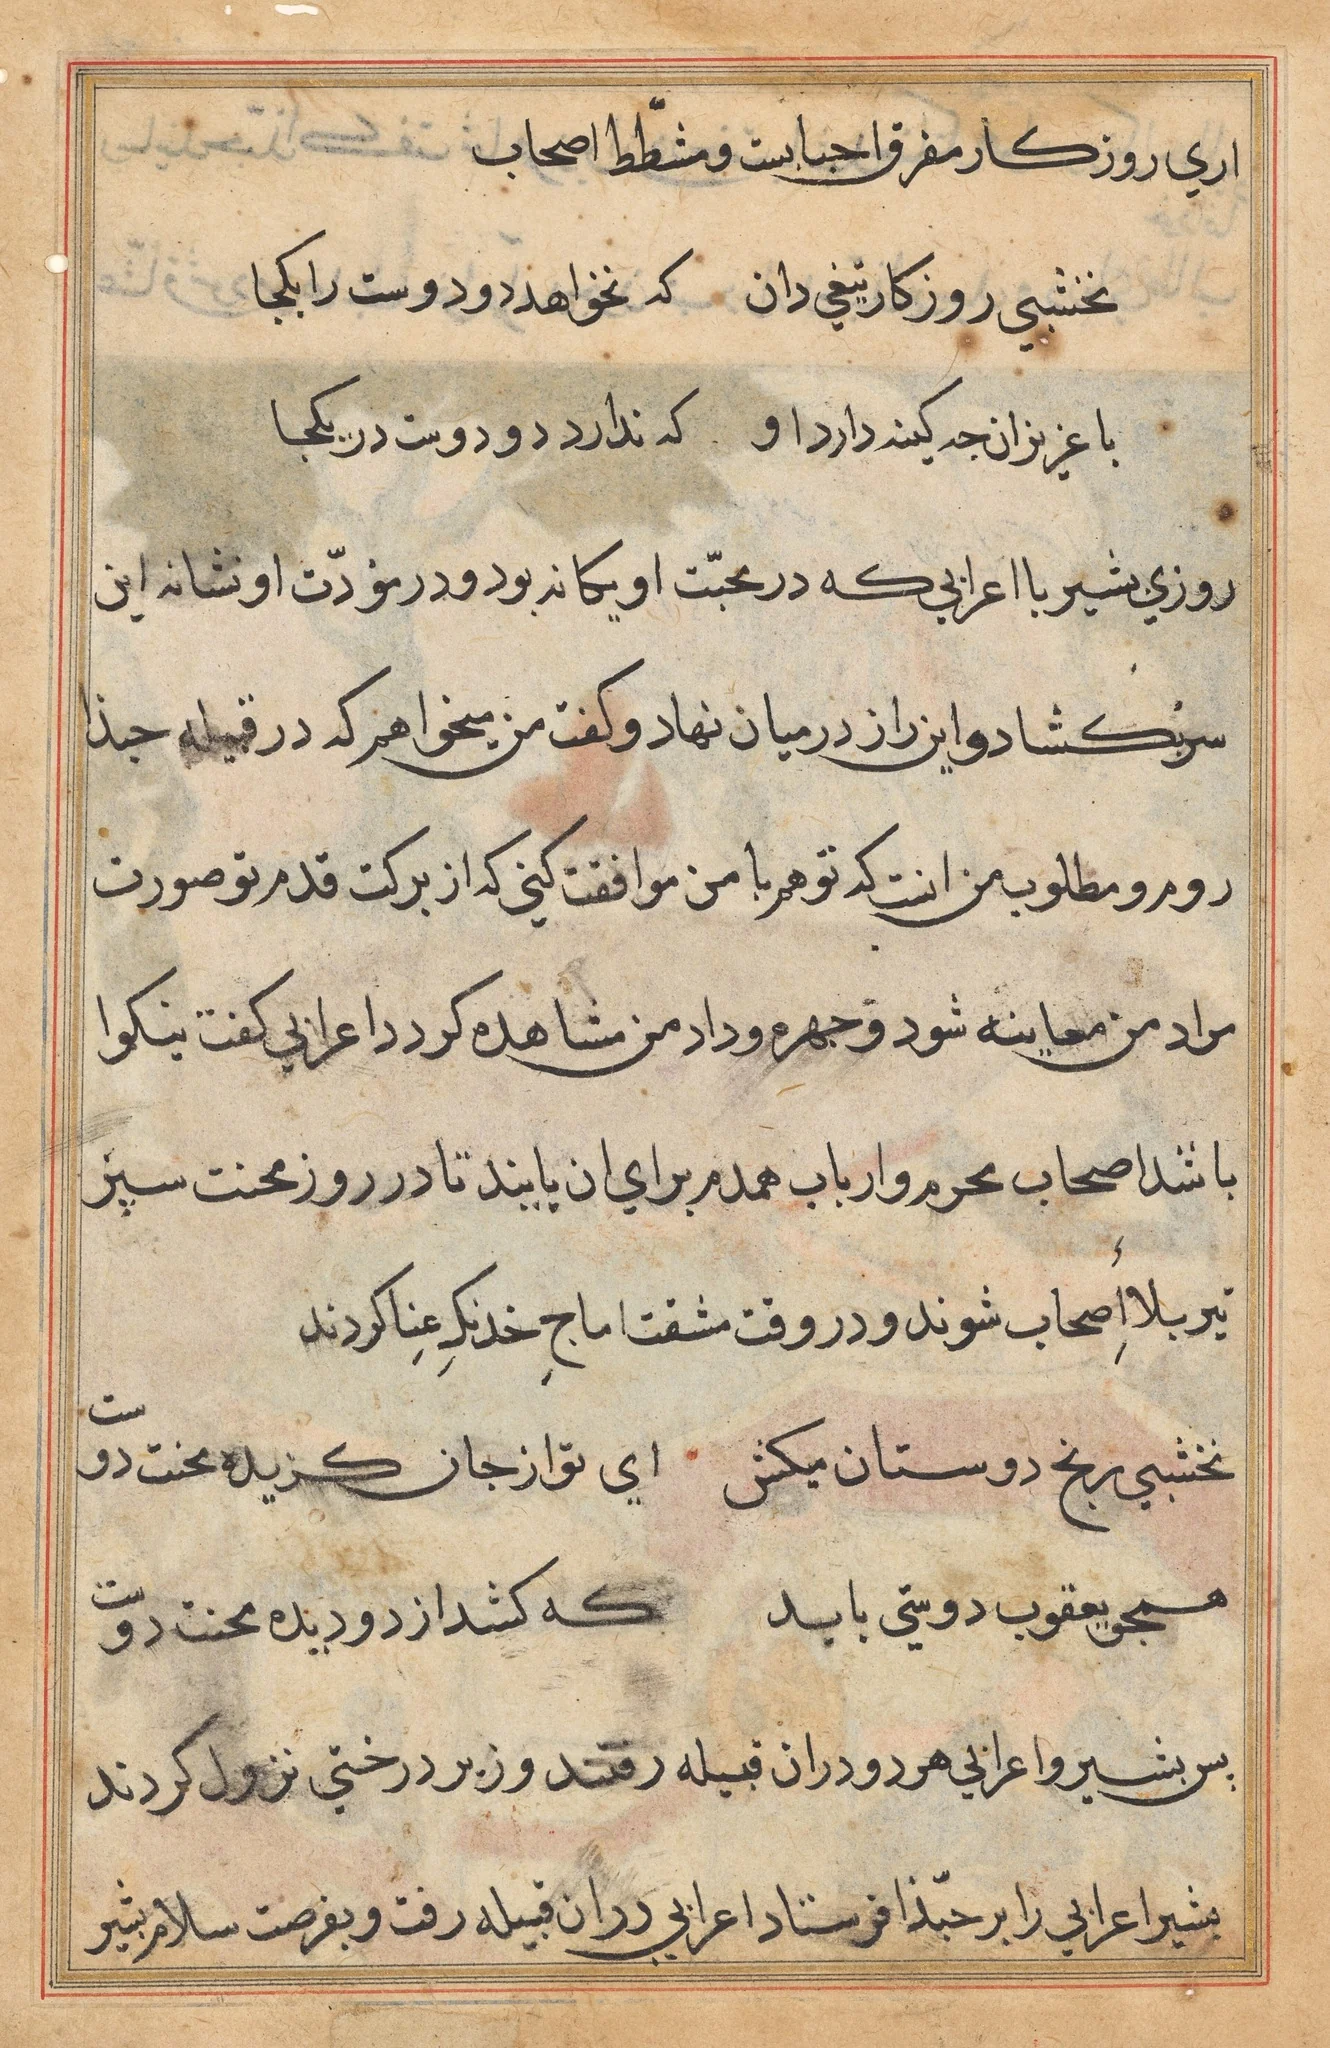 اري روزكار مفرق احبابست و مشطّط اصحاب
نخشبي روزكار تيغي دان كه نخواهد دو دوست را يكجا
با عزيزان جه كينه دارد او كه ندارد دو دوست در يكجا
روزي بشير با اعرابي كه در محبّت او يكانه بود و در مودّت او نشانه اين
سر بكشاد و اين راز درميان نهاد و كفت من ميخواهم كه در قبيله حبذا
روم و مطلوب من انست كه تو هم با من موافقت كني كه از بركت قدم تو صورت
مراد من معاينه شود و جهره وداد من مشاهده كردد اعرابي كفت نيكوا
باشد اصحاب محرم و ارباب همدم براي ان يابند تا در روز محنت سپر
تير بلا أصحاب شوند و در وقت مشقت اماج خدنك عنا كردند
نخشبي رنج دوستان ميكش اي تو از جان كزيده محنت دوست
همجو يعقوب دوستي بايد كه كشد از دو ديده محنت دوست
پس بشير و اعرابي هر دو دران قبيله رفتند و زير درختي نزول كردند
بشير اعرابي را بر حبّذا فرستاد اعرابي دران قبيله رفت و بفرصت سلام بشير